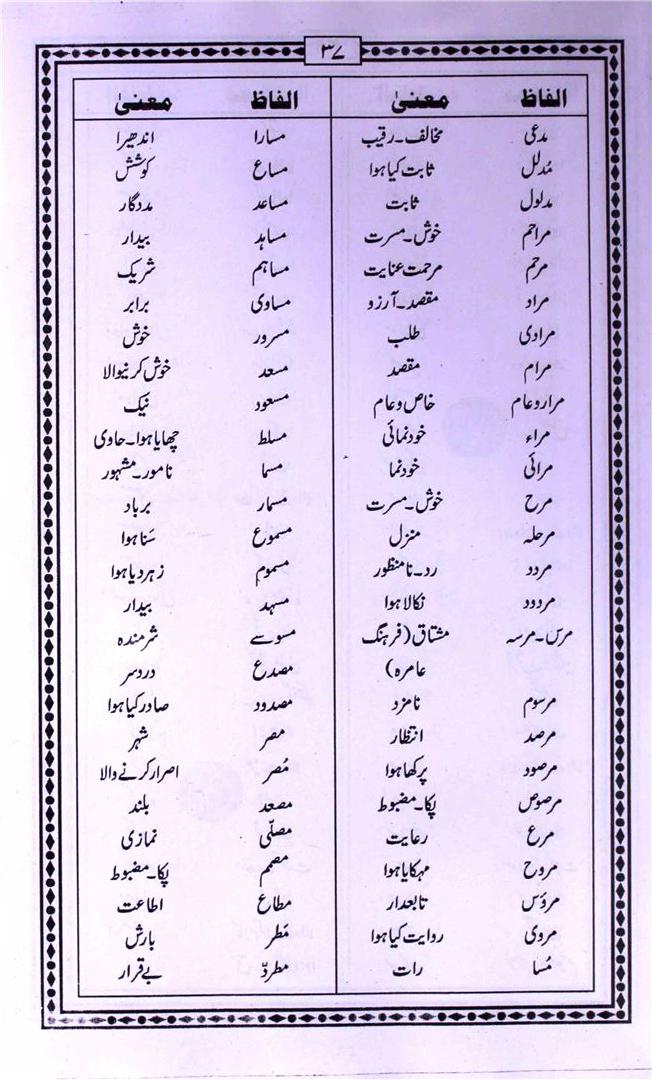 ۳۷
الفاظ معنیٰ
مدعی مخالف۔رقیب
مُدلل ثابت کیا ہوا
مدلول ثابت
مراحم خوش۔مسرت
مرحم مرحمت عنایت
مراد مقصد۔آرزو
مرادی طلب
مرام مقصد
مرارو عام خاص و عام
مراء خودنمائی
مرائی خودنما
مرح خوش۔مسرت
مرحلہ منزل
مردد رد۔نامنظور
مردود نکالا ہوا
مرس۔مرسہ مشتاق (فرہنگ
عامرہ)
مرسوم نامزد
مرصد انتظار
مرصود پرکھا ہوا
مرصوص پکا۔مضبوط
مرع رعایت
مروح مہکایا ہوا
مرؤس تابعدار
مروی روایت کیا ہوا
مُسا رات
الفاظ معنیٰ
مسارا اندھیرا
مساع کوشش
مساعد مددگار
مساہد بیدار
مساہم شریک
مساوی برابر
مسرور خوش
مسعد خوش کرنیوالا
مسعود نیک
مسلط چھایا ہوا۔حاوی
مسما نامور۔مشہور
مسمار برباد
مسموع سُنا ہوا
مسموم زہر دیا ہوا
مسہد بیدار
مسوسے شرمندہ
مصدع دردسر
مصدود صادر کیا ہوا
مصر شہر
مُصر اصرار کرنے والا
مصعد بلند
مصلّی نمازی
مصمم پکا۔مضبوط
مطاع اطاعت
مُطر بارش
مطردّ بے قرار